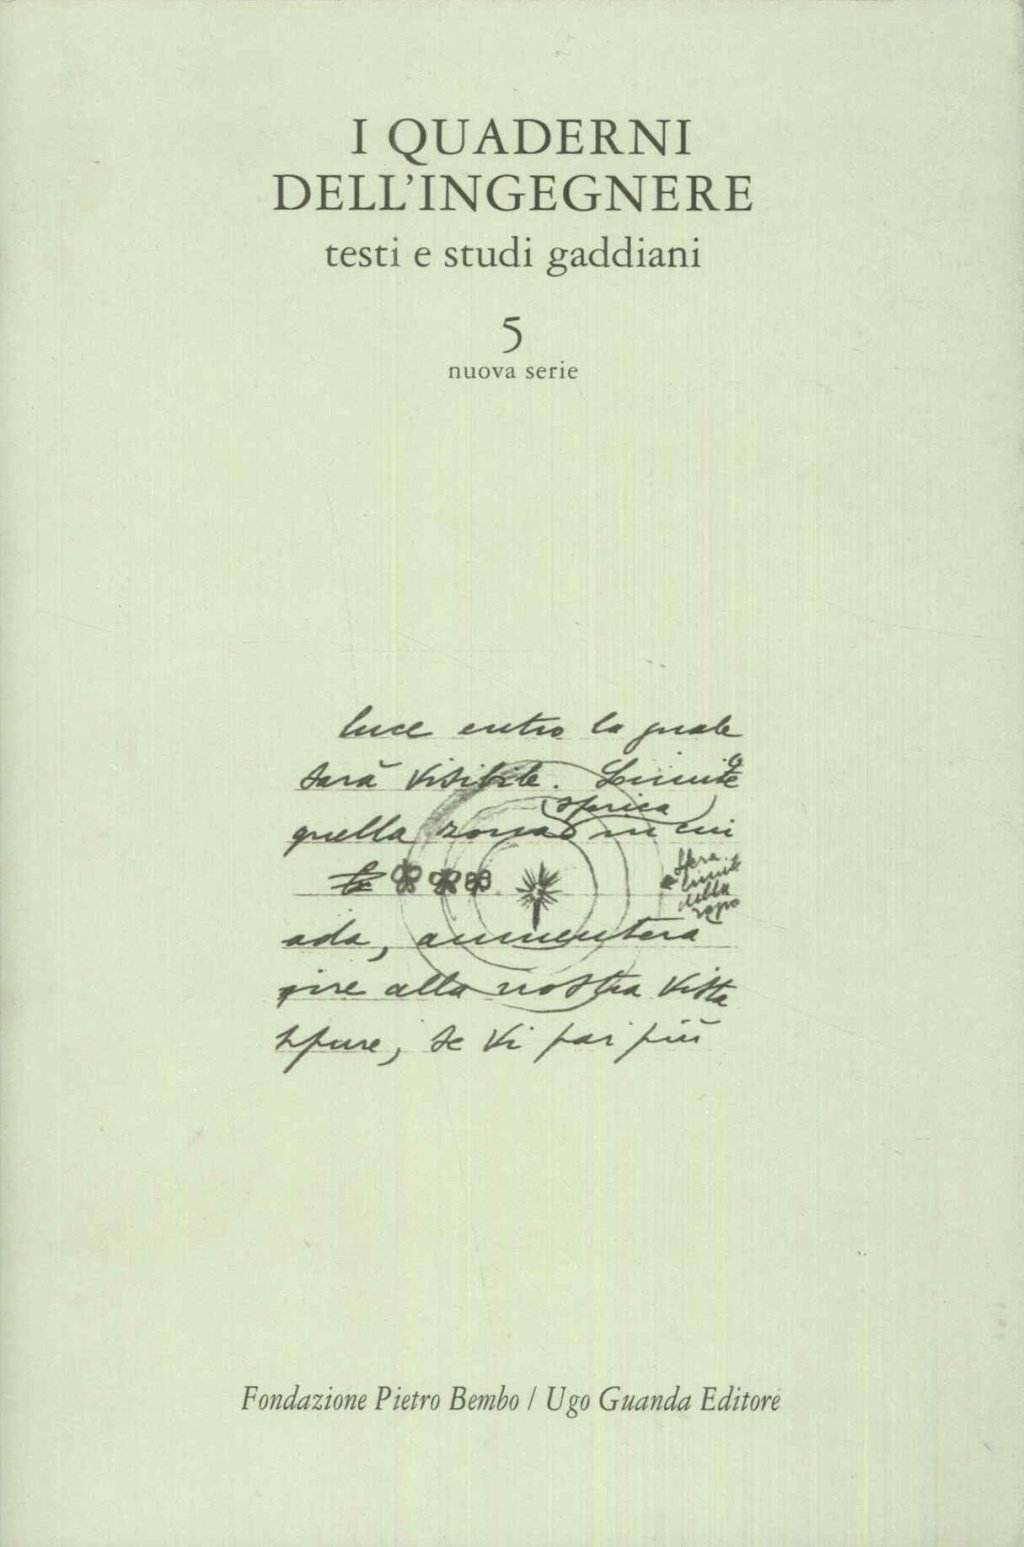 I QUADERNI
DELL'INGEGNERE
testi e studi gaddiani
5
nuova serie
luce entro la quale
sarà visibile. Limite
sferica
quella zona in cui
sfera limite
della
ada, aumenterà
gire alla nostra vista
se vi par più
Fondazione Pietro Bembo / Ugo Guanda Editore